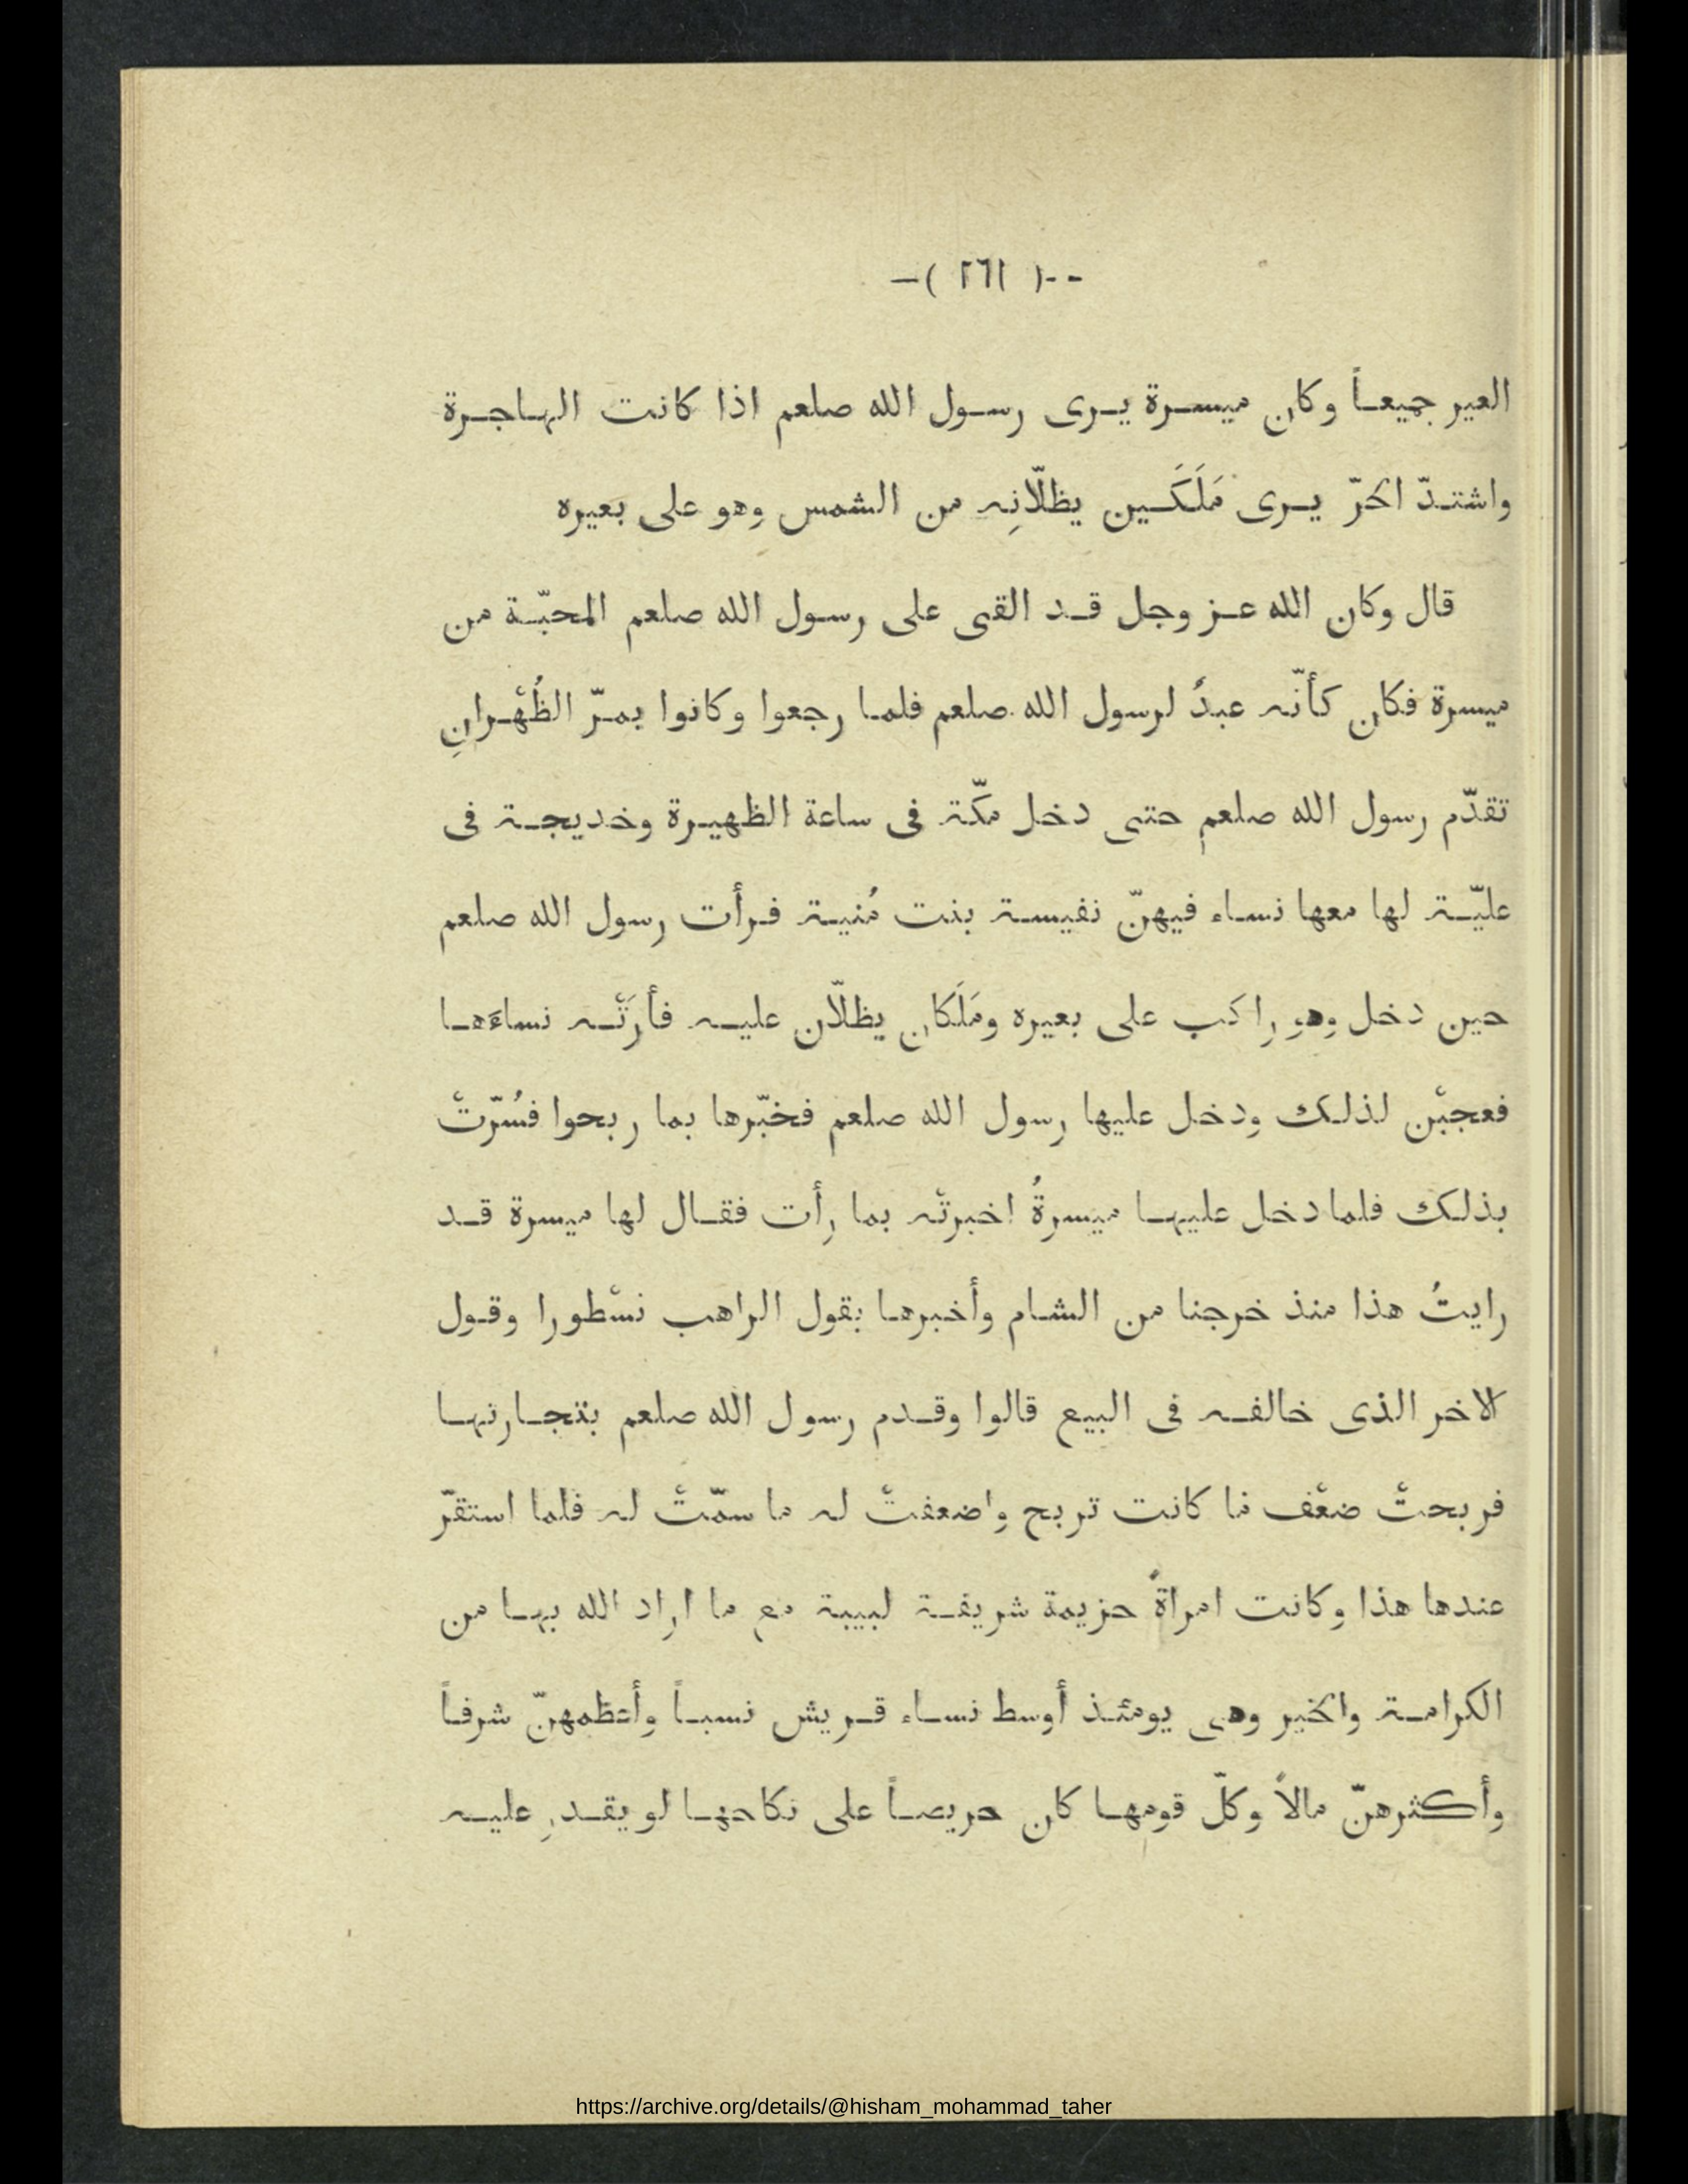 --( ٢٦١ )–
العير جميعاً وكان ميسرة يرى رسول الله صلعم اذا كانت الهاجرة
واشتدّ الحرّ يرى مَلَكَين يظلّانِه من الشمس وهو على بعيره
قال وكان الله عز وجل قد القى على رسول الله صلعم المحبّة من
ميسرة فكان كأنّه عبدٌ لرسول الله صلعم فلما رجعوا وكانوا بمرّ الظُهْرانِ
تقدّم رسول الله صلعم حتى دخل مكّة فى ساعة الظهيرة وخديجة فى
عليّة لها معها نساء فيهنّ نفيسة بنت مُنية فرأت رسول الله صلعم
حين دخل وهو راكب على بعيره ومَلَكان يظلّان عليه فأرَتْه نساءَها
فعجبْن لذلك ودخل عليها رسول الله صلعم فخبّرها بما ربحوا فسُرّتْ
بذلك فلما دخل عليها ميسرةُ اخبرتْه بما رأت فقال لها ميسرة قد
رايتُ هذا منذ خرجنا من الشام وأخبرها بقول الراهب نسْطورا وقول
الاخر الذى خالفه فى البيع قالوا وقدم رسول الله صلعم بتجارتها
فربحتْ ضعْف ما كانت تربح واضعفتْ له ما سمّتْ له فلما استقرّ
عندها هذا وكانت امراةً حزيمة شريفة لبيبة مع ما اراد الله بها من
الكرامة والخير وهى يومئذ أوسط نساء قريش نسباً وأعظمهنّ شرفاً
وأكثرهنّ مالاً وكلّ قومها كان حريصاً على نكاحها لو يقدر عليه
https://archive.org/details/@hisham_mohammad_taher